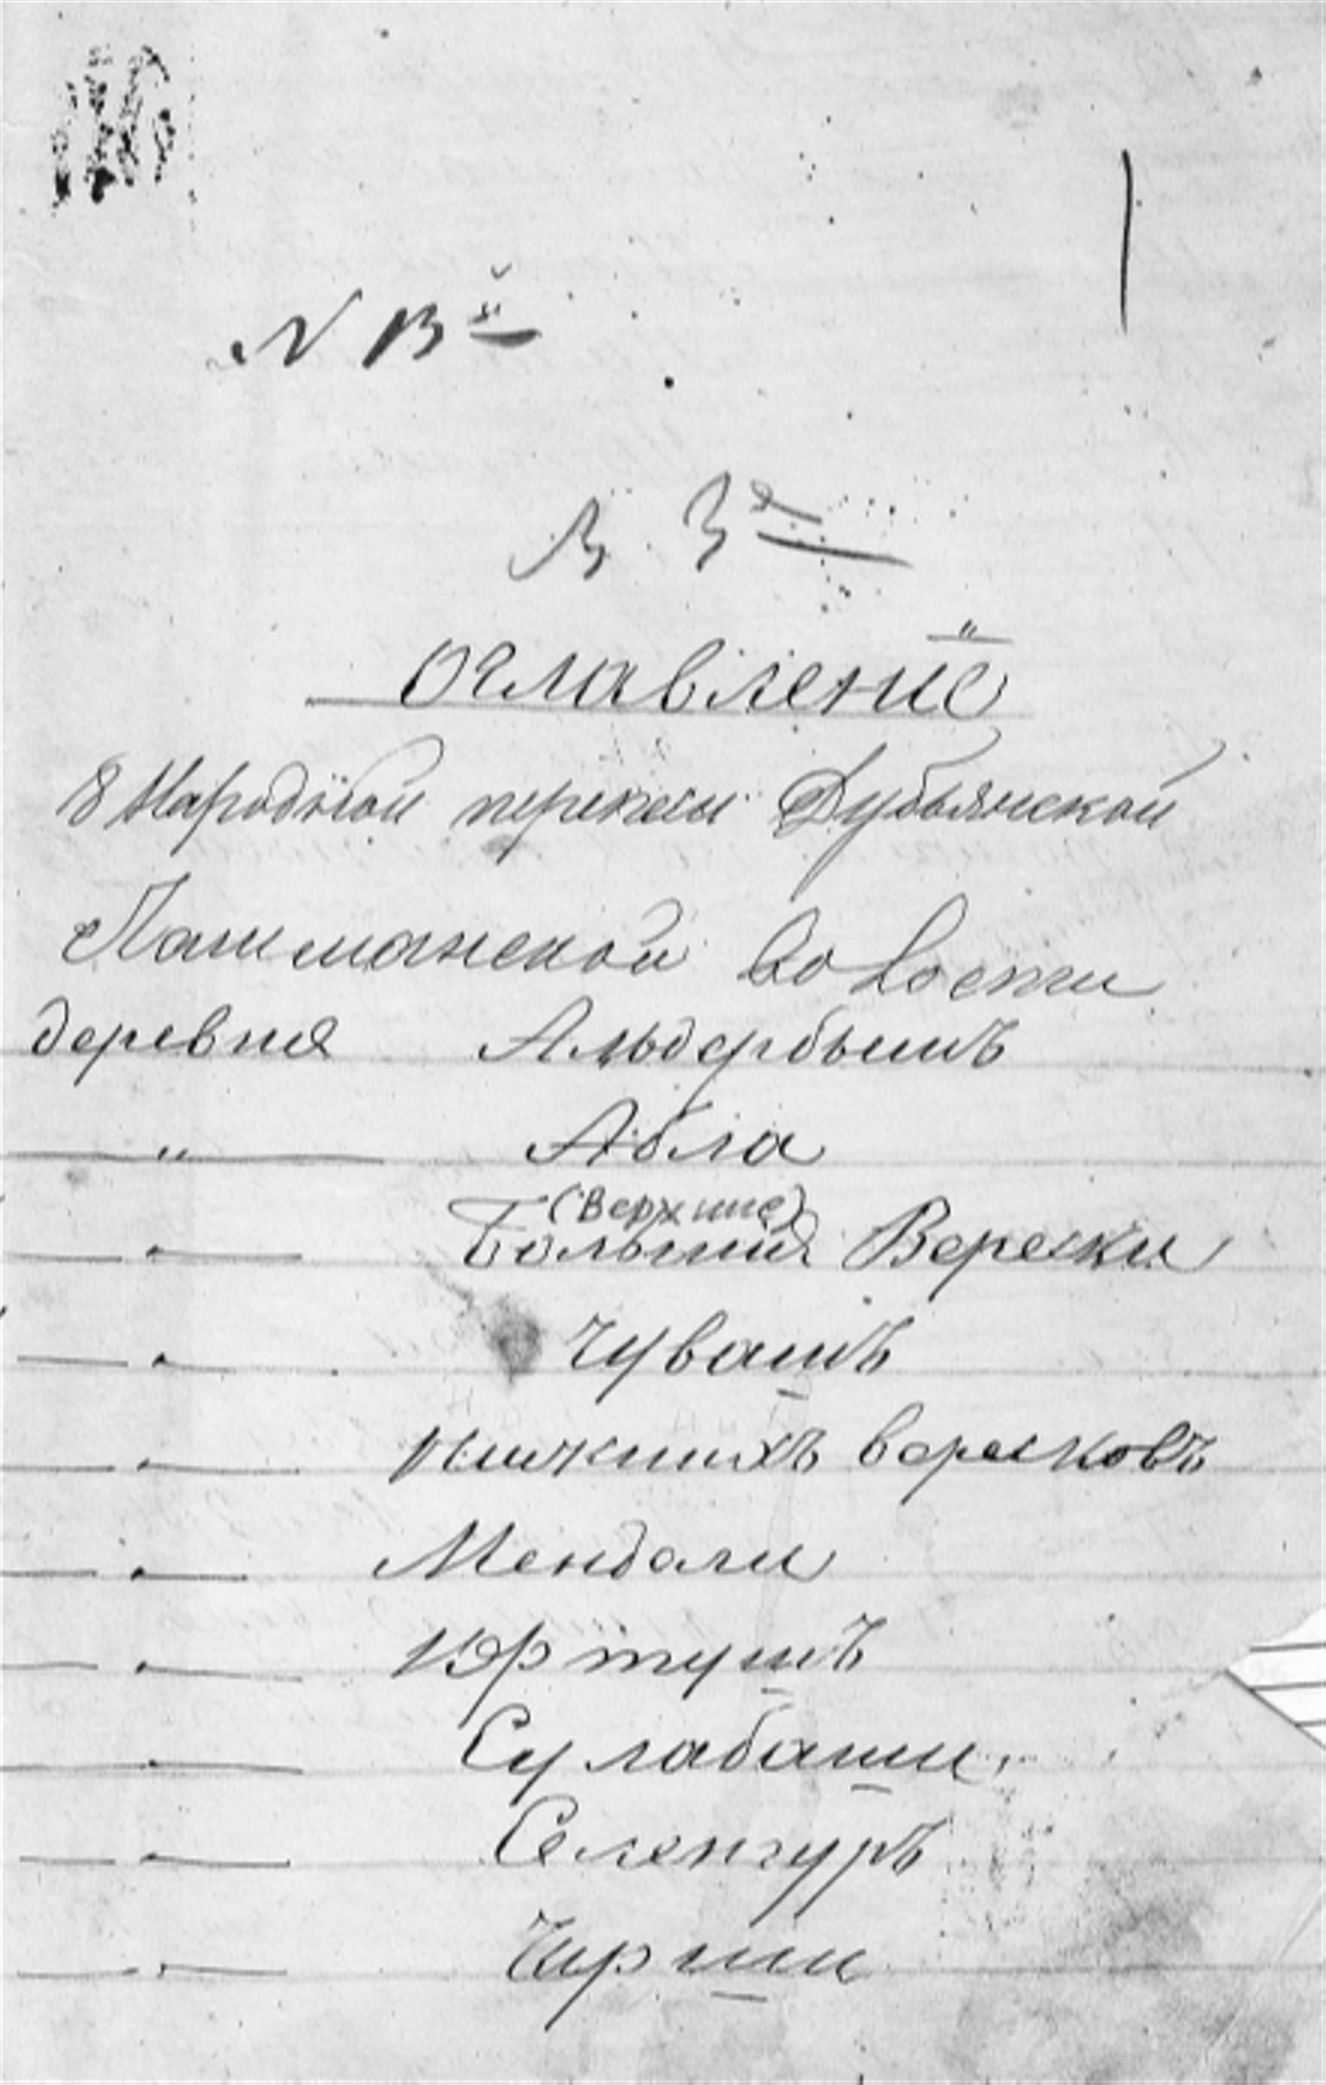 N 13й
Оглавленiе
8 Народной переписи Дубьянской
Лашманской Волости
деревня Альдербышъ
" Абла
(Верхние)
" Большия Верески
" Чувашъ
" Нижнихъ Вересковъ
" Мендали
" Юртушъ
" Сулабаши
" Селенгуръ
" Чирши